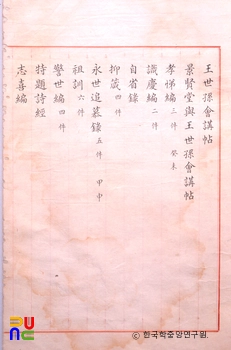 王世孫會講帖
景賢堂與王世孫會講帖
孝悌編 三件 癸未
識慶編 二件
自省錄
抑箴 四件
永世追慕錄 五件 甲申
祖訓 六件
警世編 四件
特題詩經
志喜編
© 한국학중앙연구원.